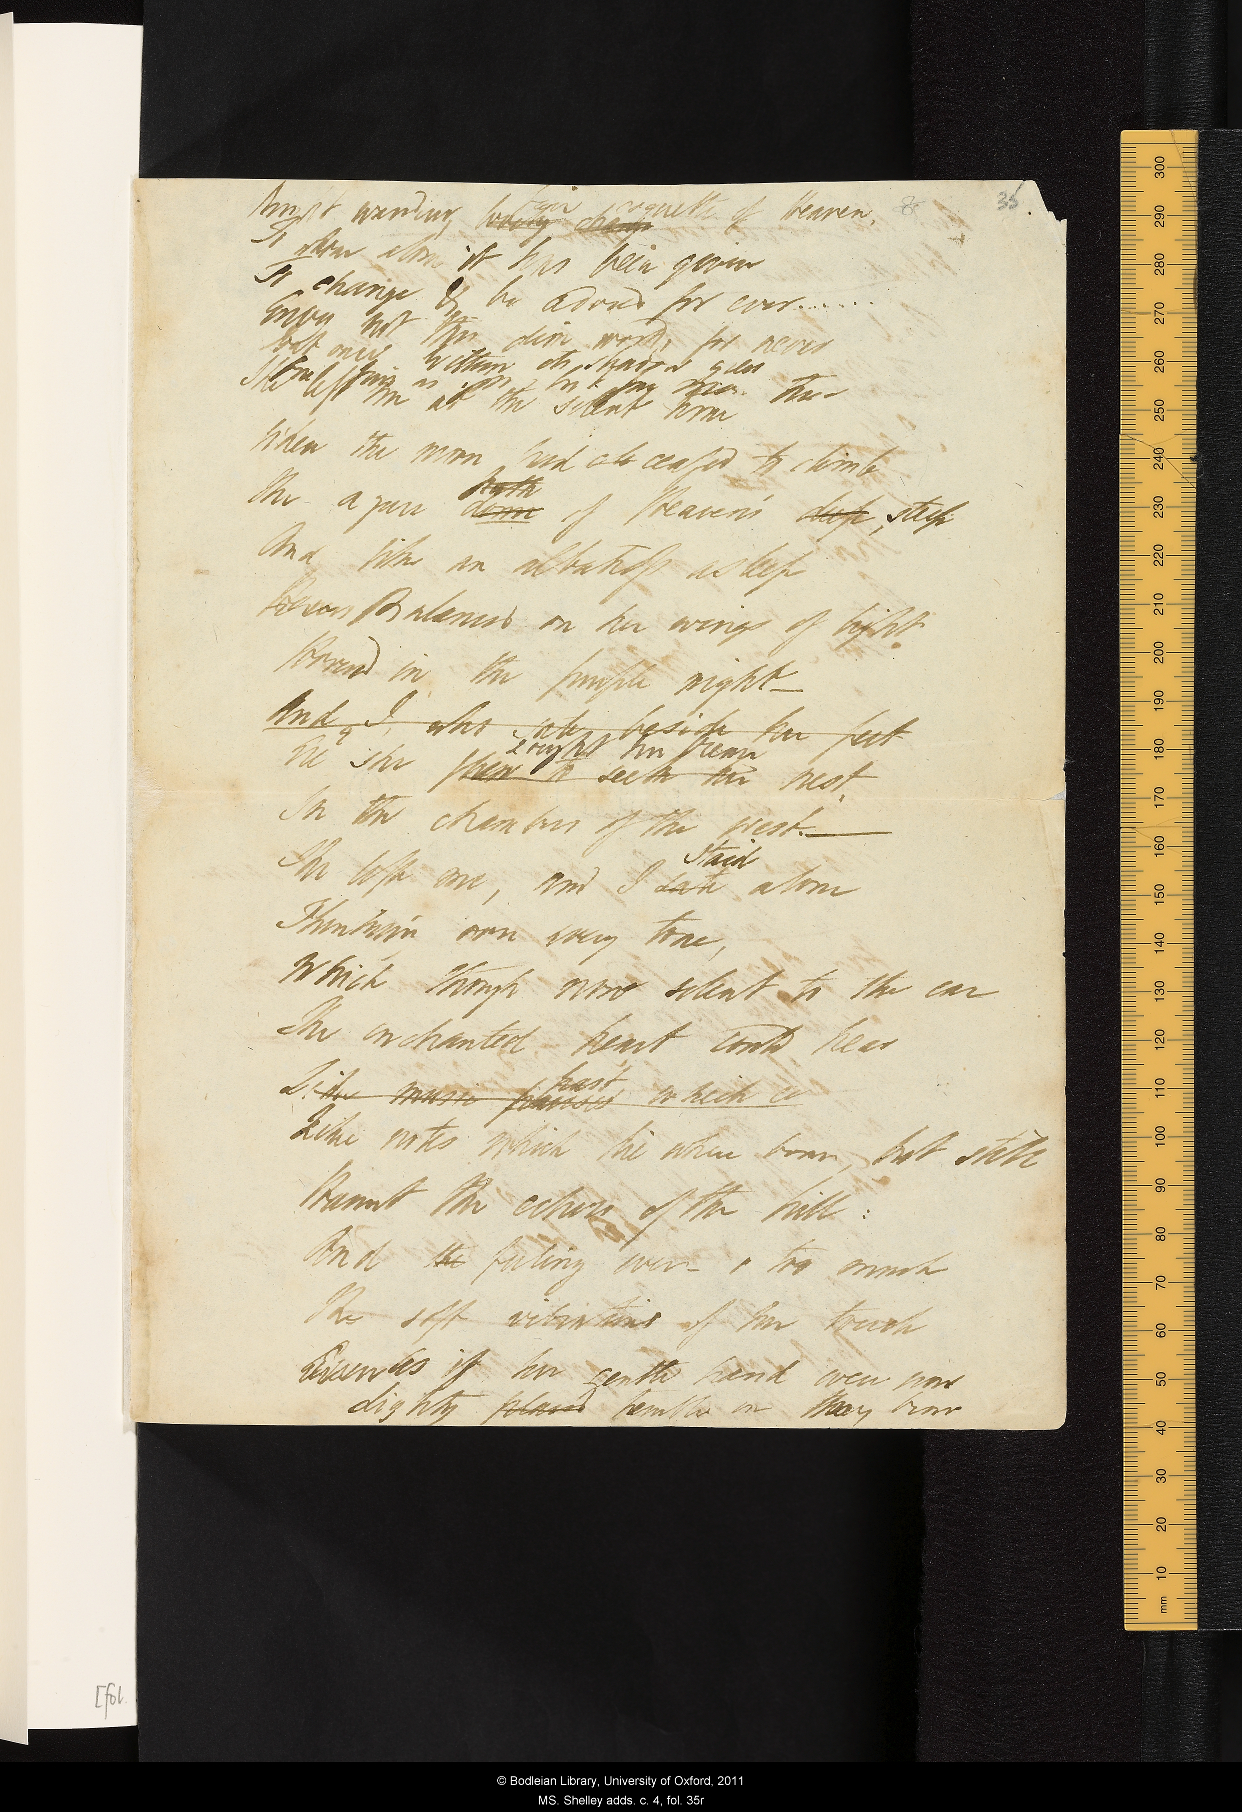 Bright wanderer, lovely changer fair coquette of heaven, 35
To whom alone it has been given
To change & be adored for ever......
Envy not this dim world, for never
But once within its shadow grew
One fair as you, but far more true
She left me at the silent time
When the moon had ceased to climb
The azure dome path of Heaven's deep steep
And like an albatross asleep
Balanced on her wings of light
Hovered in the purple night—
And I, who sate beside her feet
Ere she sought her ocean nest
In the chambers of the west.—
She left me, and I sate staid alone
Thinking over every tone,
Which though now silent to the ear
The enchanted heart could hear
Like music past which
Like notes which die when born, but still
Haunt the echoes of the hill:
And feeling ever o too much
The soft vibrations of her touch
As if her gentle hand even now
Lightly placed trembled on my brow
[fol.
300
290
280
270
260
250
240
230
220
210
200
190
180
170
160
150
140
130
120
110
100
90
80
70
60
50
40
30
20
10
mm
© Bodleian Library, University of Oxford, 2011
MS. Shelley adds. c. 4, fol. 35r